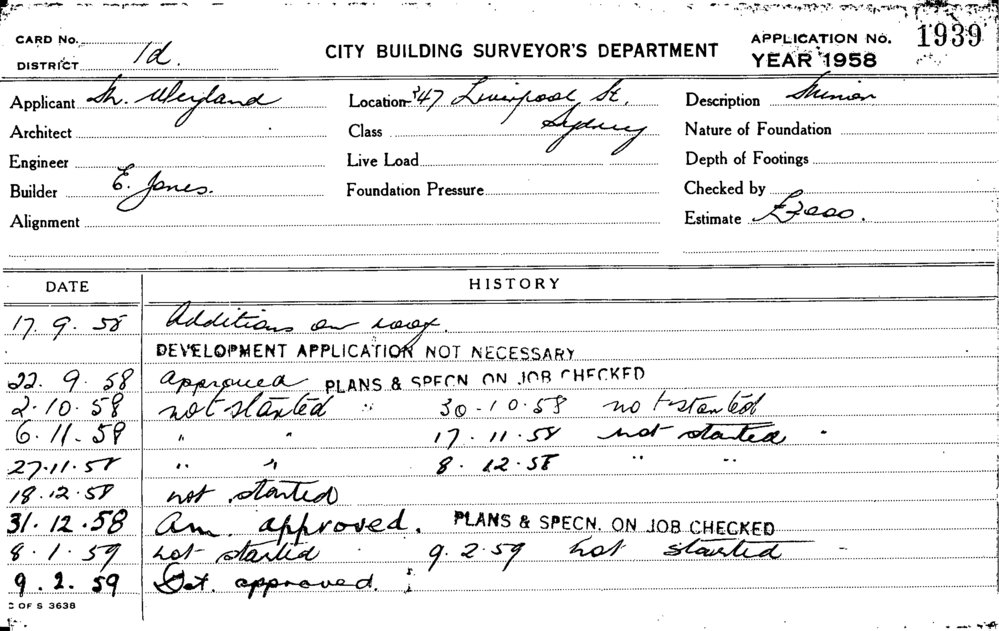 CARD No.
DISTRICT 1d.
CITY BUILDING SURVEYOR'S DEPARTMENT
APPLICATION No. 1939
YEAR 1958
Applicant Weyland Location 347 Liverpool St. Description
Architect Class Sydney Nature of Foundation
Engineer Live Load Depth of Footings
Builder E. Jones. Foundation Pressure Checked by
Alignment Estimate £3000.
DATE HISTORY
17. 9. 58 Additions on roof.
DEVELOPMENT APPLICATION NOT NECESSARY
22. 9. 58 approved PLANS & SPECN ON JOB CHECKED
2.10.58 not started " 30-10.58 not started
6.11.58 " " 17.11.58 not started .
27.11.58 " " 8.12.58 " "
18.12.58 not started
31.12.58 Am. approved. PLANS & SPECN. ON JOB CHECKED
8.1.59 not started 9.2.59 not started -
9.2.59 approved.
C OF S 3638